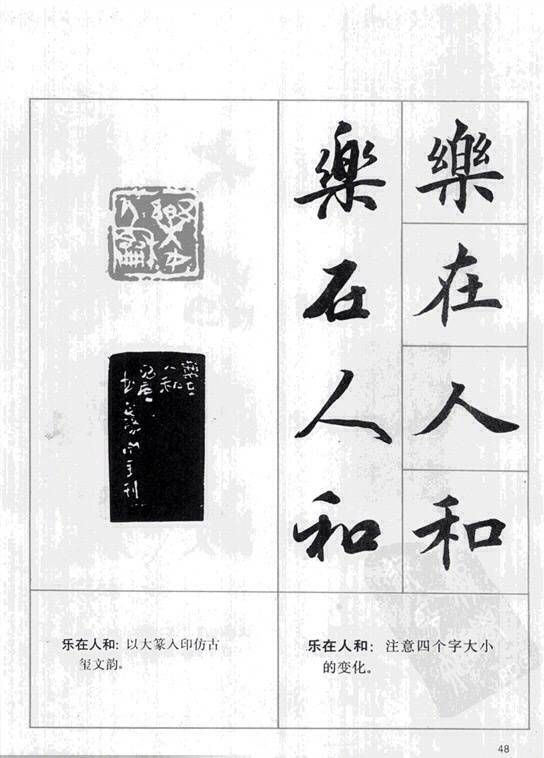 樂在人和
樂在人和
樂在
人和
乐在人和：注意四个字大小
的变化。
乐在人和：以大篆入印仿古
玺文韵。
48